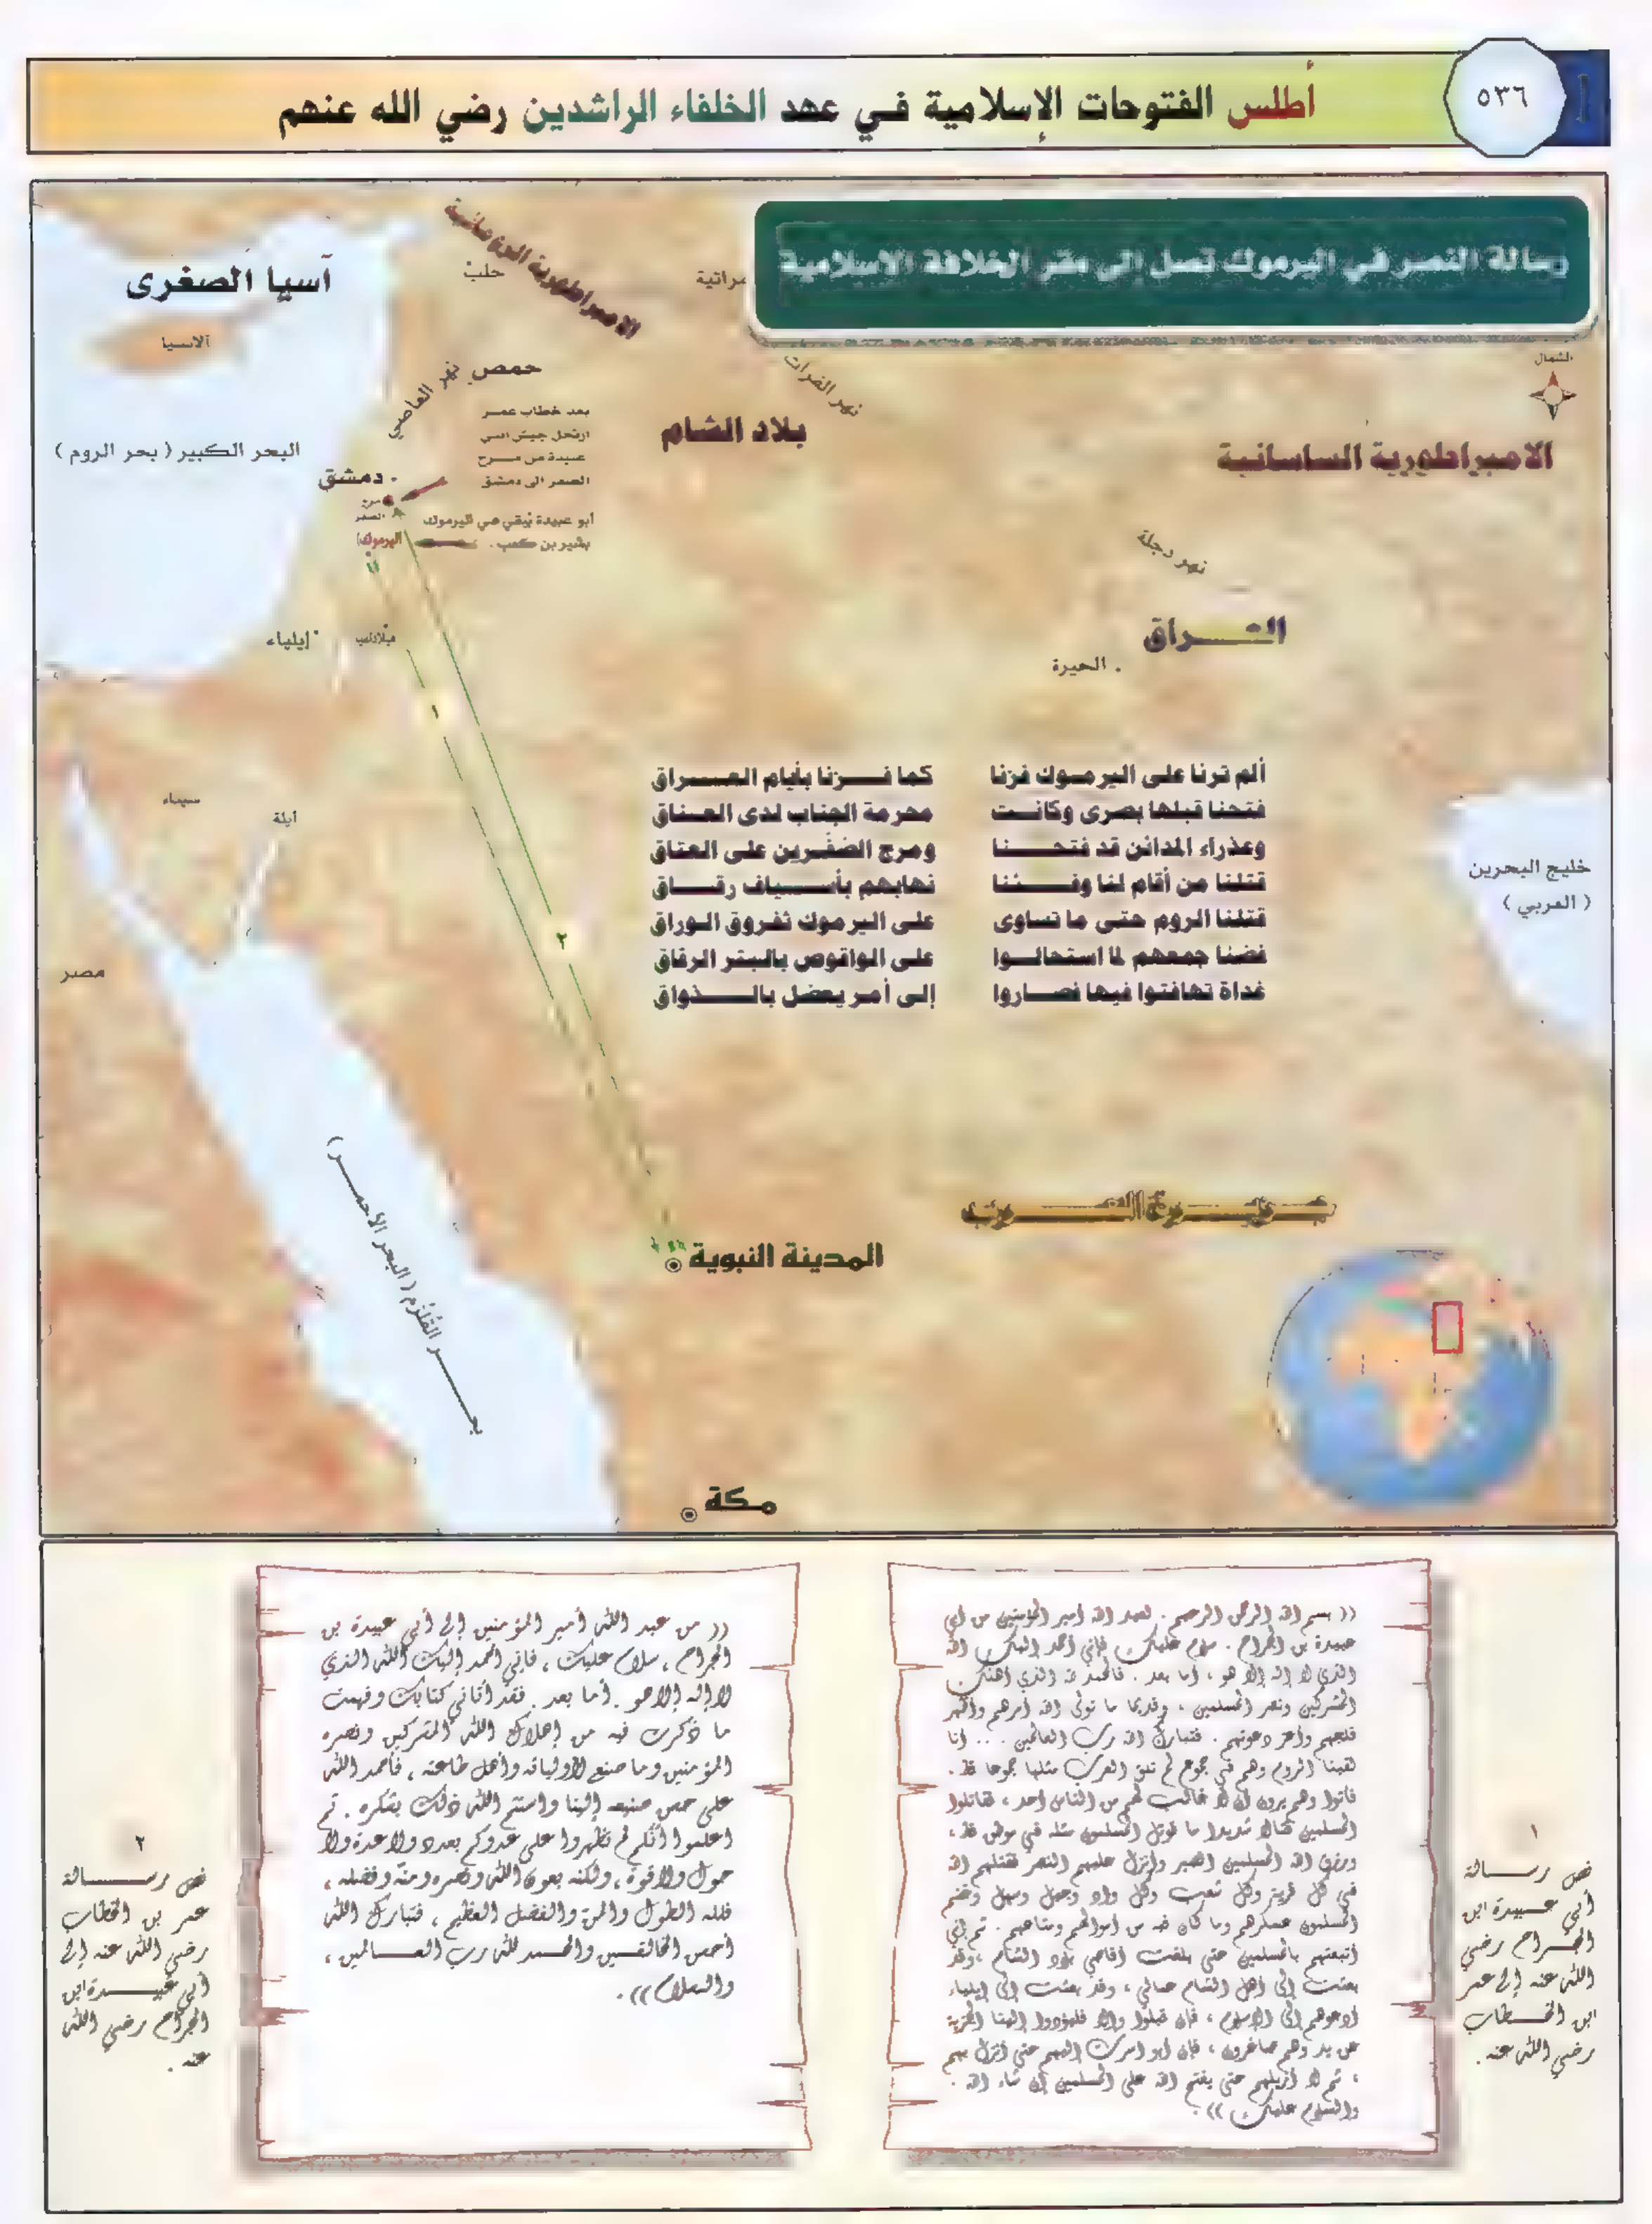 ٥٣٦
أطلس الفتوحات الإسلامية في عهد الخلفاء الراشدين رضي الله عنهم
رسالة النصر في اليرموك تصل إلى مقر الخلافة الاسلامية
الشمال
آسيا الصغرى
الامبراطورية
حلب
مراتية
آلاسيا
نهر الفرات
حمص
نهر العاصي
بلاد الشام
الامبراطورية الساسانية
البحر الكبير ( بحر الروم )
بعد خطاب عمر
ارتحل جيش أبي
عبيدة من مرج
الصفر الى دمشق
دمشق
مرج
الصفر
أبو عبيدة يبقي في اليرموك
بشير بن كعب .
اليرموك
نهر دجلة
العراق
الحيرة
إيلياء
١
سيناء
أيلة
ألم ترنا على اليرموك فزنا كما فزنا بأيام العراق
فتحنا قبلها بصرى وكانت محرمة الجناب لدى العناق
وعذراء المدائن قد فتحنا ومرج الصُفّرين على العتاق
قتلنا من أقام لنا وفئنا نهابهم بأسياف رقاق
قتلنا الروم حتى ما تساوى على اليرموك ثفروق الوراق
فضنا جمعهم لما استحالوا على الواقوص بالبتر الرقاق
غداة تهافتوا فيها فصاروا إلى أمر يعضل بالذواق
خليج البحرين
( العربي )
٢
مصر
بحر القُلْزُم ( البحر الأحمر )
جزيرة العرب
المدينة النبوية
مكة
١
نص رسالة
أبي عبيدة ابن
الجراح رضي
الله عنه إلى عمر
ابن الخطاب
رضي الله عنه .
(( بسم الله الرحمن الرحيم . لعبد الله أمير المؤمنين من أبي
عبيدة بن الجراح . سلام عليك فإني أحمد إليك الله
الذي لا إله إلا هو ، أما بعد . فالحمد لله الذي أهلك
المشركين ونصر المسلمين ، وقديما ما تولى الله أمرهم وأظهر
فلجهم وأعز دعوتهم . فتبارك الله رب العالمين .... أنا
لقينا الروم وهم في جموع لم تلق العرب مثلها جموعا قط .
فأتوا وهم يرون أن لا غالب لهم من الناس أحد ، فقاتلوا
المسلمين قتالا شديدا ما قوتل المسلمون مثله في موطن قط ،
ورزق الله المسلمين الصبر وأنزل عليهم النصر فقتلهم الله
في كل قرية وكل شعب وكل واد وجبل وسهل وغنم
المسلمون عسكرهم وما كان فيه من أموالهم ومتاعهم . ثم إني
اتبعتهم بالمسلمين حتى بلغت أقاصي بلاد الشام ، وقد
بعثت إلى أهل الشام عمالي ، وقد بعثت إلى إيلياء
أدعوهم إلى الإسلام ، فإن قبلوا وإلا فليؤدوا إلينا الجزية
عن يد وهم صاغرون ، فإن أبوا سرت إليهم حتى أنزل بهم
، ثم لا أزيلهم حتى يفتح الله على المسلمين إن شاء الله .
والسلام عليك )) .
(( من عبد الله أمير المؤمنين إلى أبي عبيدة بن
الجراح ، سلام عليك ، فإني أحمد إليك الله الذي
لا إله إلا هو . أما بعد . فقد أتاني كتابك وفهمت
ما ذكرت فيه من إهلاك الله المشركين ونصره
المؤمنين وما صنع لأوليائه وأهل طاعته ، فأحمد الله
على حسن صنيعه إلينا واستتم الله ذلك بشكره . ثم
اعلموا أنكم لم تظهروا على عدوكم بعدد ولا عدة ولا
حول ولا قوة ، ولكنه بعون الله ونصره ومنّه وفضله ،
فلله الطول والمن والفضل العظيم ، فتبارك الله
أحسن الخالقين والحمد لله رب العالمين ،
والسلام )) .
٢
نص رسالة
عمر بن الخطاب
رضي الله عنه إلى
أبي عبيدة ابن
الجراح رضي الله
عنه .